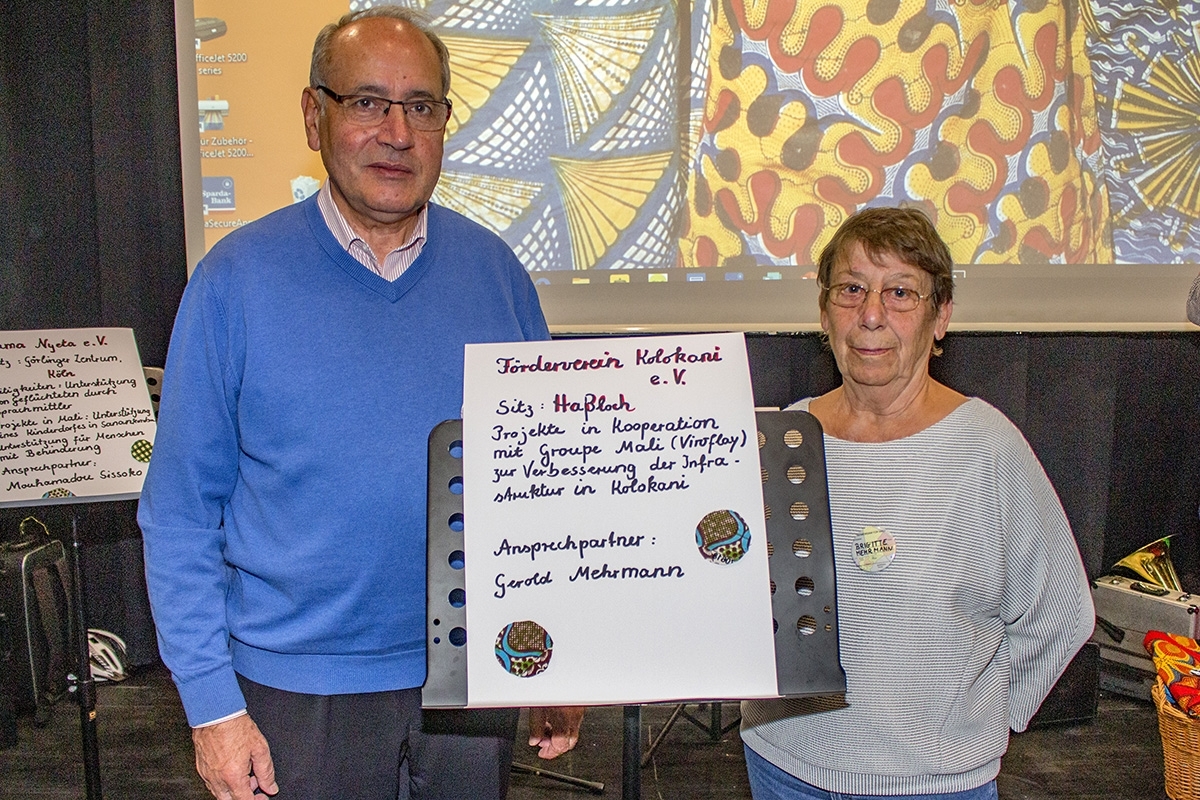 OfficeJet 5200
series
ur Zubehör -
fficeJet 5200...
Sparda-
Bank
aSecureAp
ama Nyeta e.V.
itz : Görlinger Zentrum,
Köln
tigkeiten : Unterstützung
on geflüchteten durch
prachmittler
rojekte in Mali : Unterstützung
eines Kinderdorfes in Sanankoro
Unterstützung für Menschen
mit Behinderung
Ansprechpartner :
Mouhamadou Sissoko
Förderverein Kolokani
e.V.
Sitz : Haßloch
Projekte in Kooperation
mit Groupe Mali (Viroflay)
zur Verbesserung der Infra -
struktur in Kolokani
Ansprechpartner :
Gerold Mehrmann
BRIGITTE
MEHRMANN